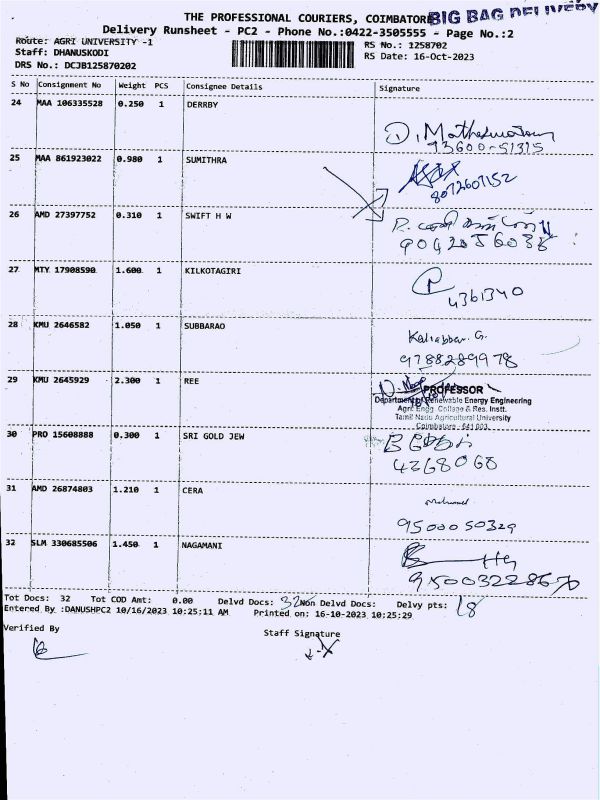 THE PROFESSIONAL COURIERS, COIMBATORE
BIG BAG DELIVERY
Delivery Runsheet - PC2 - Phone No.:0422-3505555 - Page No.:2
Route: AGRI UNIVERSITY -1
RS No.: 1258702
Staff: DHANUSKODI
RS Date: 16-Oct-2023
DRS No.: DCJB125870202
S No Consignment No Weight PCS Consignee Details Signature
24 MAA 106335528 0.250 1 DERRBY
93600-51315
25 MAA 861923022 0.980 1 SUMITHRA
8072607152
26 AMD 27397752 0.310 1 SWIFT H W
27 MTY 17908590 1.600 1 KILKOTAGIRI
4361340
28 KMU 2646582 1.050 1 SUBBARAO
9788289978
29 KMU 2645929 2.300 1 REE
PROFESSOR
Department of Renewable Energy Engineering
Agrl. Engg. College & Res. Instt.
Tamil Nadu Agricultural University
Coimbatore - 641 003.
30 PRO 15608888 0.300 1 SRI GOLD JEW
4268068
31 AMD 26874803 1.210 1 CERA
Mohamed
9500050329
32 SLM 330685506 1.450 1 NAGAMANI
Tot Docs: 32 Tot COD Amt: 0.00 Delvd Docs: 32 Non Delvd Docs: Delvy pts: 18
Entered By :DANUSHPC2 10/16/2023 10:25:11 AM Printed on: 16-10-2023 10:25:29
Verified By
Staff Signature